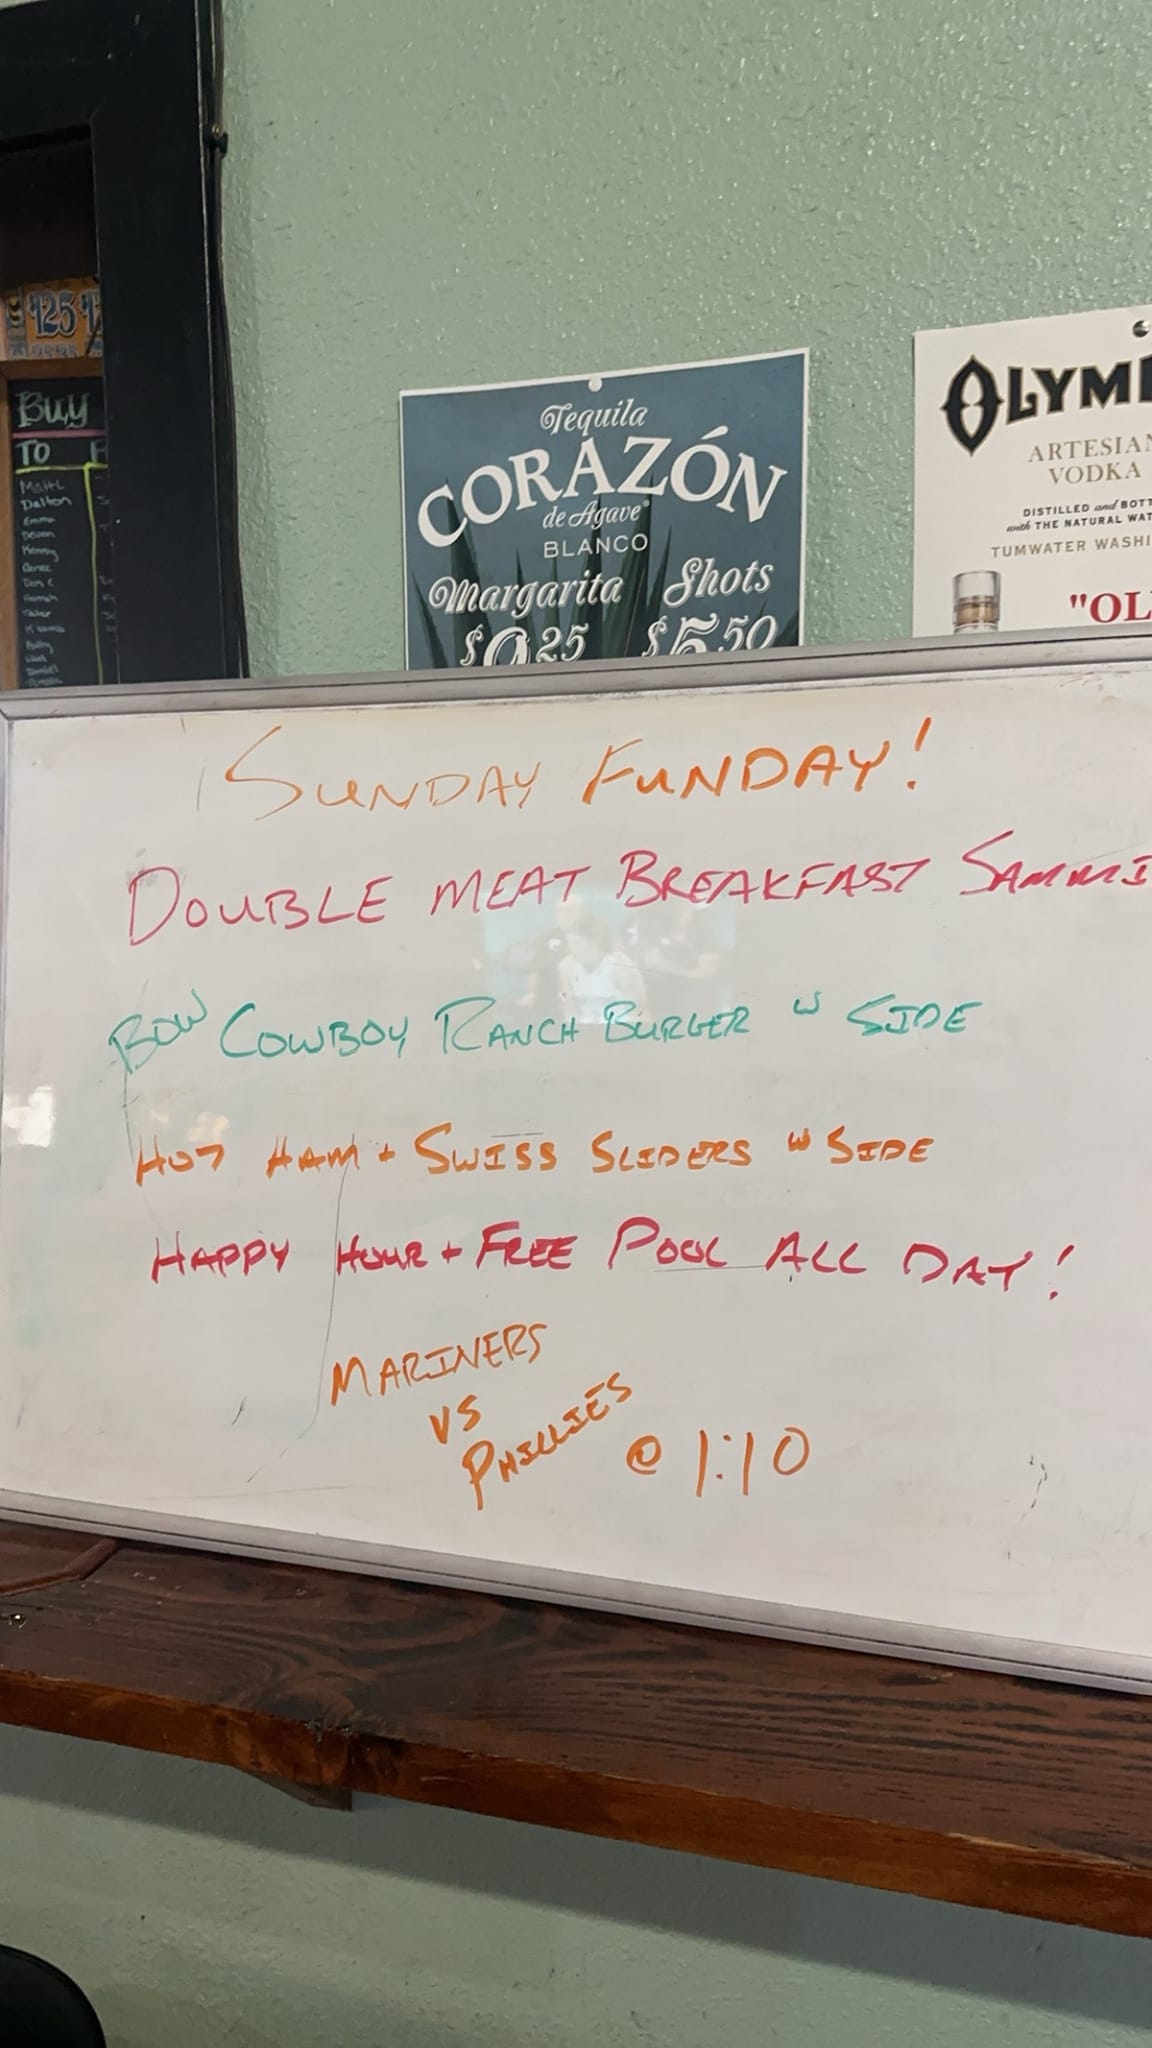 $125
BUY
TO F
Matt L
Dalton
Emma
Devon
Kenny
Renee
Dom C
Hannah
Tequila
CORAZÓN
de Agave
BLANCO
Margarita Shots
$9.25 $5.50
OLYM
ARTESIAN
VODKA
DISTILLED and BOTT
with THE NATURAL WAT
TUMWATER WASHI
"OL
¡SUNDAY FUNDAY!
DOUBLE MEAT BREAKFAST SAMMI
BOW COWBOY RANCH BURGER W SIDE
HOT HAM + SWISS SLIDERS W SIDE
HAPPY HOUR + FREE POOL ALL DAY!
MARINERS
VS
PHILLIES @ 1:10